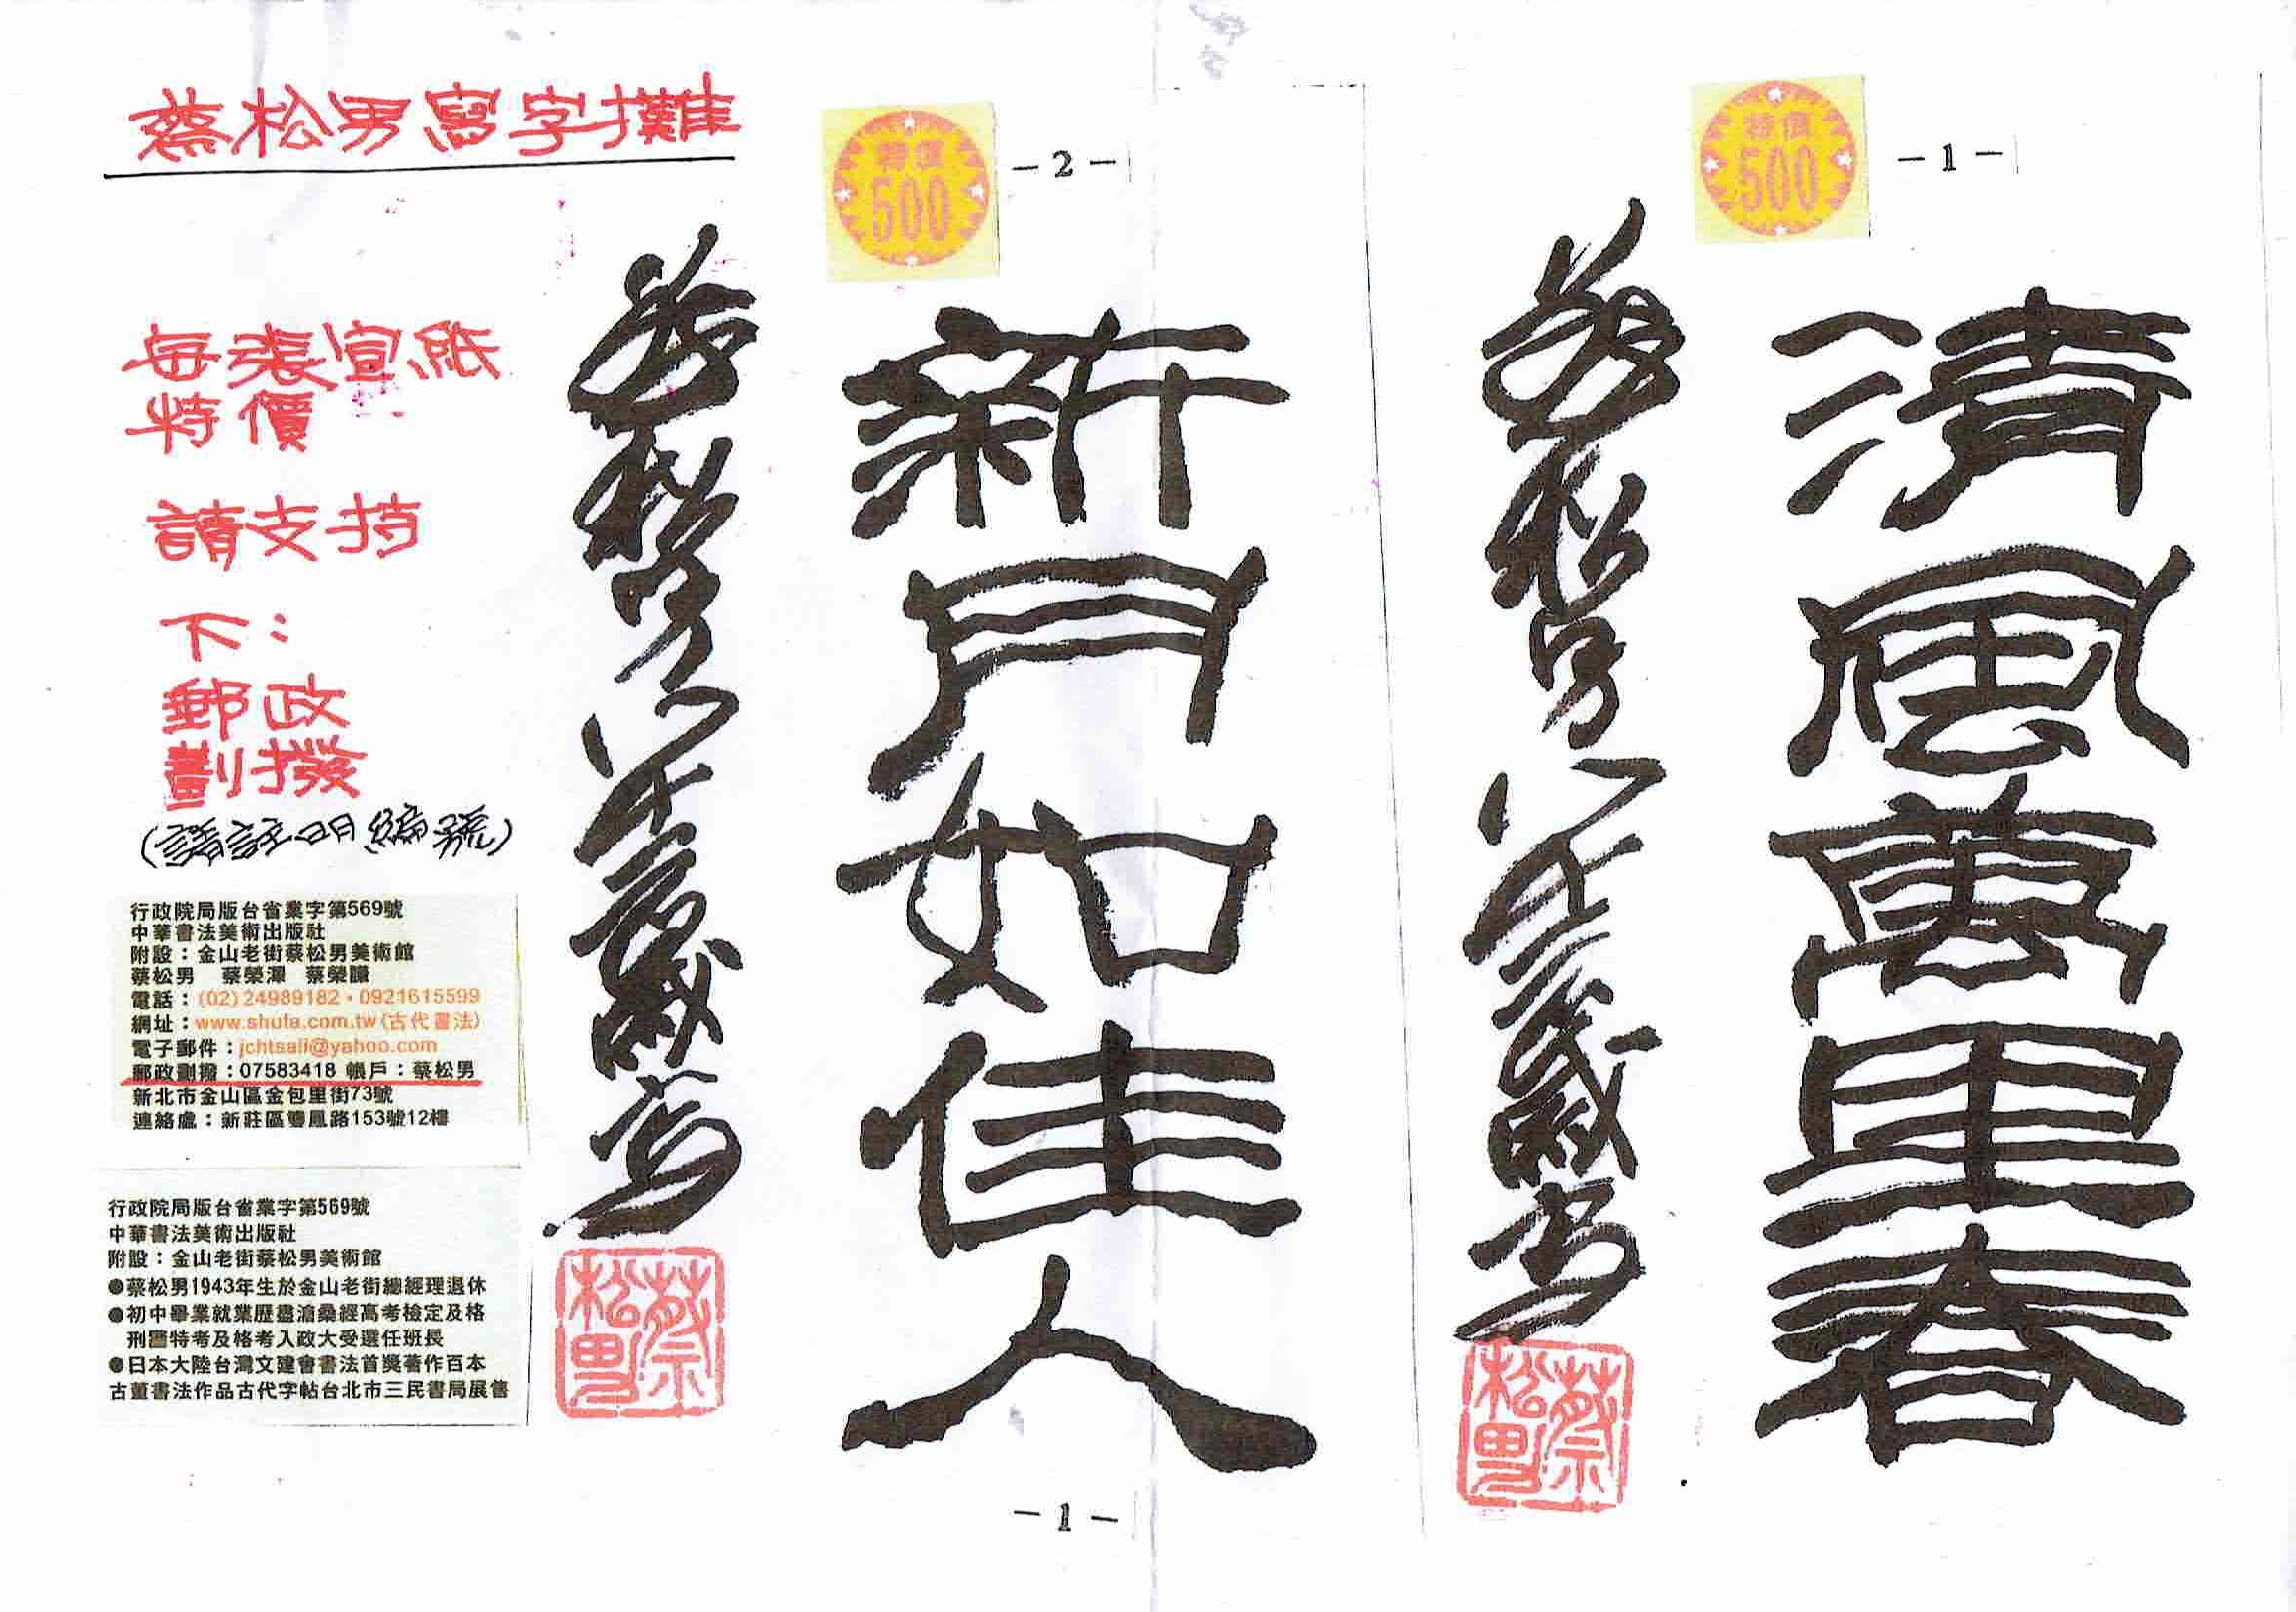 -1-
特價
500
清風萬里春
蔡松男
八十一歲書
蔡松男
-2-
特價
500
新月如佳人
蔡松男
八十一歲書
蔡松男
-1-
蔡松男寫字攤
每張宣紙
特價
請支持
下：
郵政
劃撥
(請註明編號)
行政院局版台省業字第569號
中華書法美術出版社
附設：金山老街蔡松男美術館
蔡松男 蔡榮澤 蔡榮謙
電話：(02)24989182・0921615599
網址：www.shufa.com.tw(古代書法)
電子郵件：jchtsali@yahoo.com
郵政劃撥：07583418 帳戶：蔡松男
新北市金山區金包里街73號
連絡處：新莊區雙鳳路153號12樓
行政院局版台省業字第569號
中華書法美術出版社
附設：金山老街蔡松男美術館
●蔡松男1943年生於金山老街總經理退休
●初中畢業就業歷盡滄桑經高考檢定及格
刑警特考及格考入政大受選任班長
●日本大陸台灣文建會書法首獎著作百本
古董書法作品古代字帖台北市三民書局展售